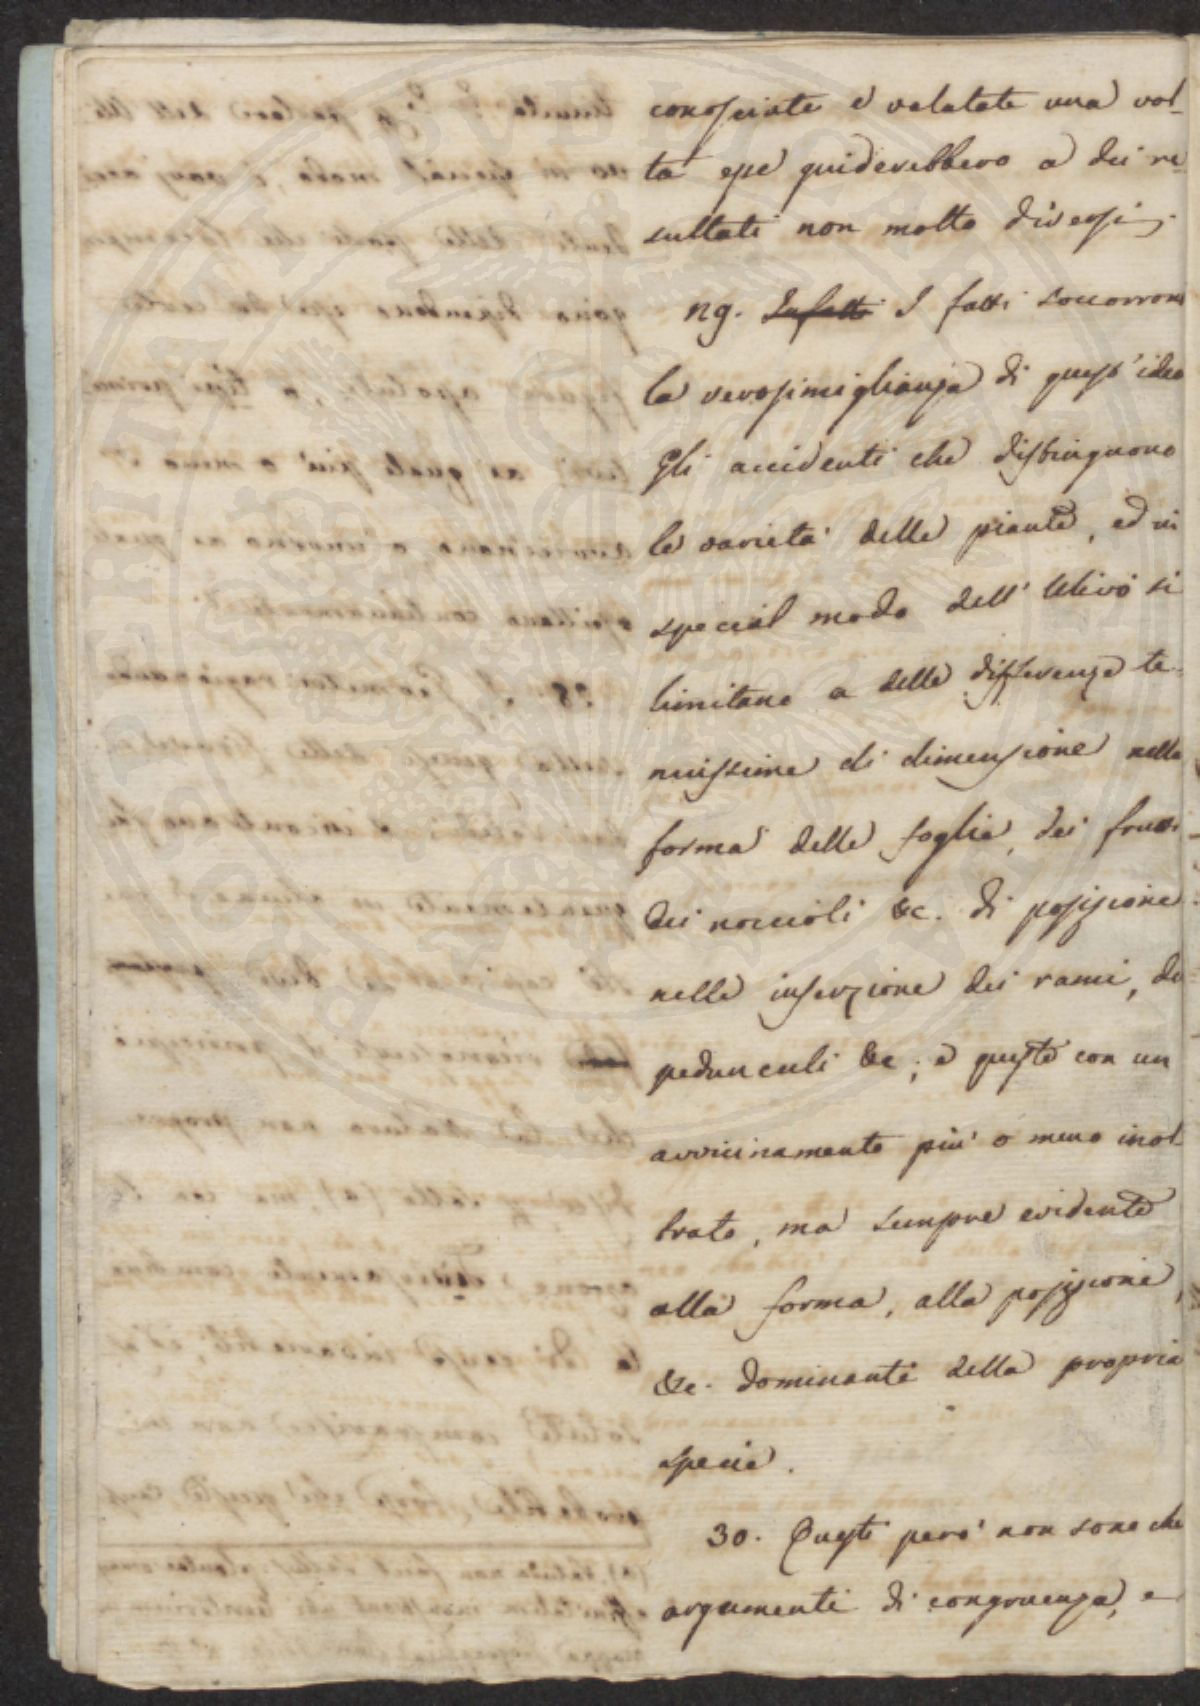 conosciute e valutate una vol-
ta esse guiderebbero a dei re
sultati non molto diversi.
29. Infatti I fatti soccorrono
la verosimiglianza di quest'idea
Gli accidenti che distinguono
le varietà delle piante, ed in
special modo dell'Ulivo si
limitano a delle differenze te-
nuissime di dimensione nella
forma delle foglie, dei frutti
dei noccioli &c. di posizione
nelle inserzione dei rami, dei
pedunculi &c; e queste con un
avvicinamento più o meno inol
trato, ma sempre evidente
alla forma, alla posizione,
&c. dominanti della propria
specie.
30. Questi però non sono che
argomenti di congruenza, e